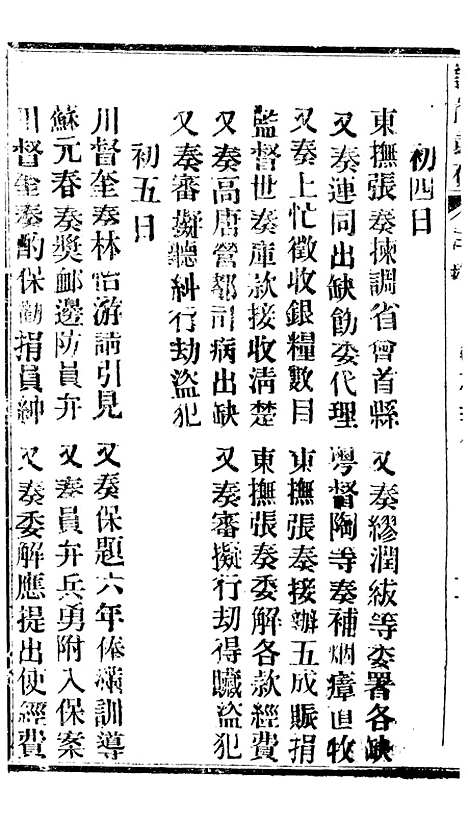 初四日
東撫張奏揀調省會首縣　又奏繆潤紱等委署各缺
又奏運同出缺飭委代理　粵督陶等奏補烟瘴直牧
又奏上忙徵收銀糧數目　東撫張奏接辦五成賑捐
監督世奏庫款接收清楚　東撫張奏委解各款經費
又奏高唐營都司病出缺　又奏審擬行劫得贓盜犯
又奏審擬聽糾行劫盜犯
初五日
川督奎奏林怡游請引見　又奏保題六年俸滿訓導
蘇元春奏獎邮邊防員弁　又奏員弁兵勇附入保案
川督奎奏酌保勸捐員紳　又奏委解應提出使經費